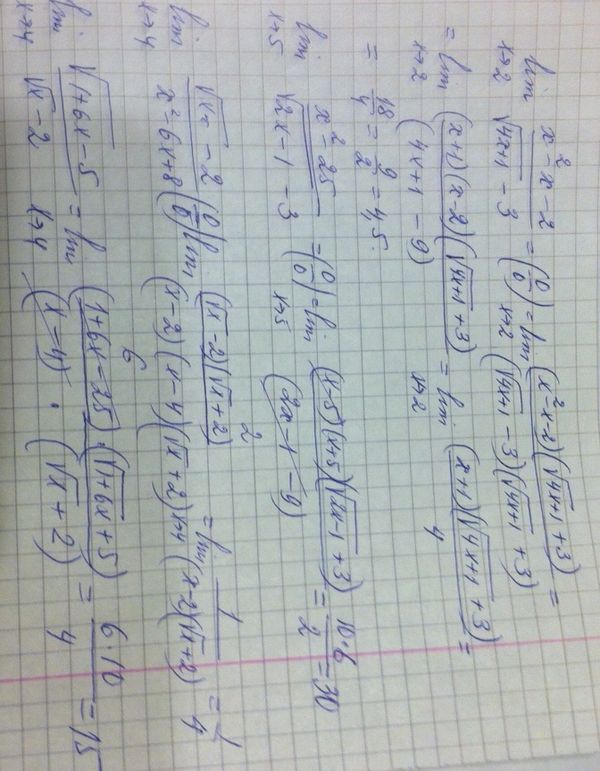 lim x→2 (x² - x - 2)/(√(4x+1) - 3) = (0/0) = lim x→2 (x² - x - 2)(√(4x+1) + 3)/(√(4x+1) - 3)(√(4x+1) + 3) =
= lim x→2 (x+1)(x-2)(√(4x+1) + 3)/(4x+1 - 9) = lim x→2 (x+1)(√(4x+1) + 3)/4 =
= 18/4 = 9/2 = 4,5.
lim x→5 (x² - 25)/(√(2x-1) - 3) = (0/0) = lim x→5 (x-5)(x+5)(√(2x-1) + 3)/(2x-1-9) 2 = 10·6/2 = 30
lim x→4 (√x - 2)/(x² - 6x + 8) (0/0) lim (√x - 2)(√x + 2)/(x-2)(x-4)(√x + 2) = lim x→4 1/(x-2)(√x + 2) = 1/4
lim x→4 (√(1+6x) - 5)/(√x - 2) = lim x→4 6 (1+6x-25)·(√x + 2)/(x-4)·(√(1+6x) + 5) = 6·10/4 = 15